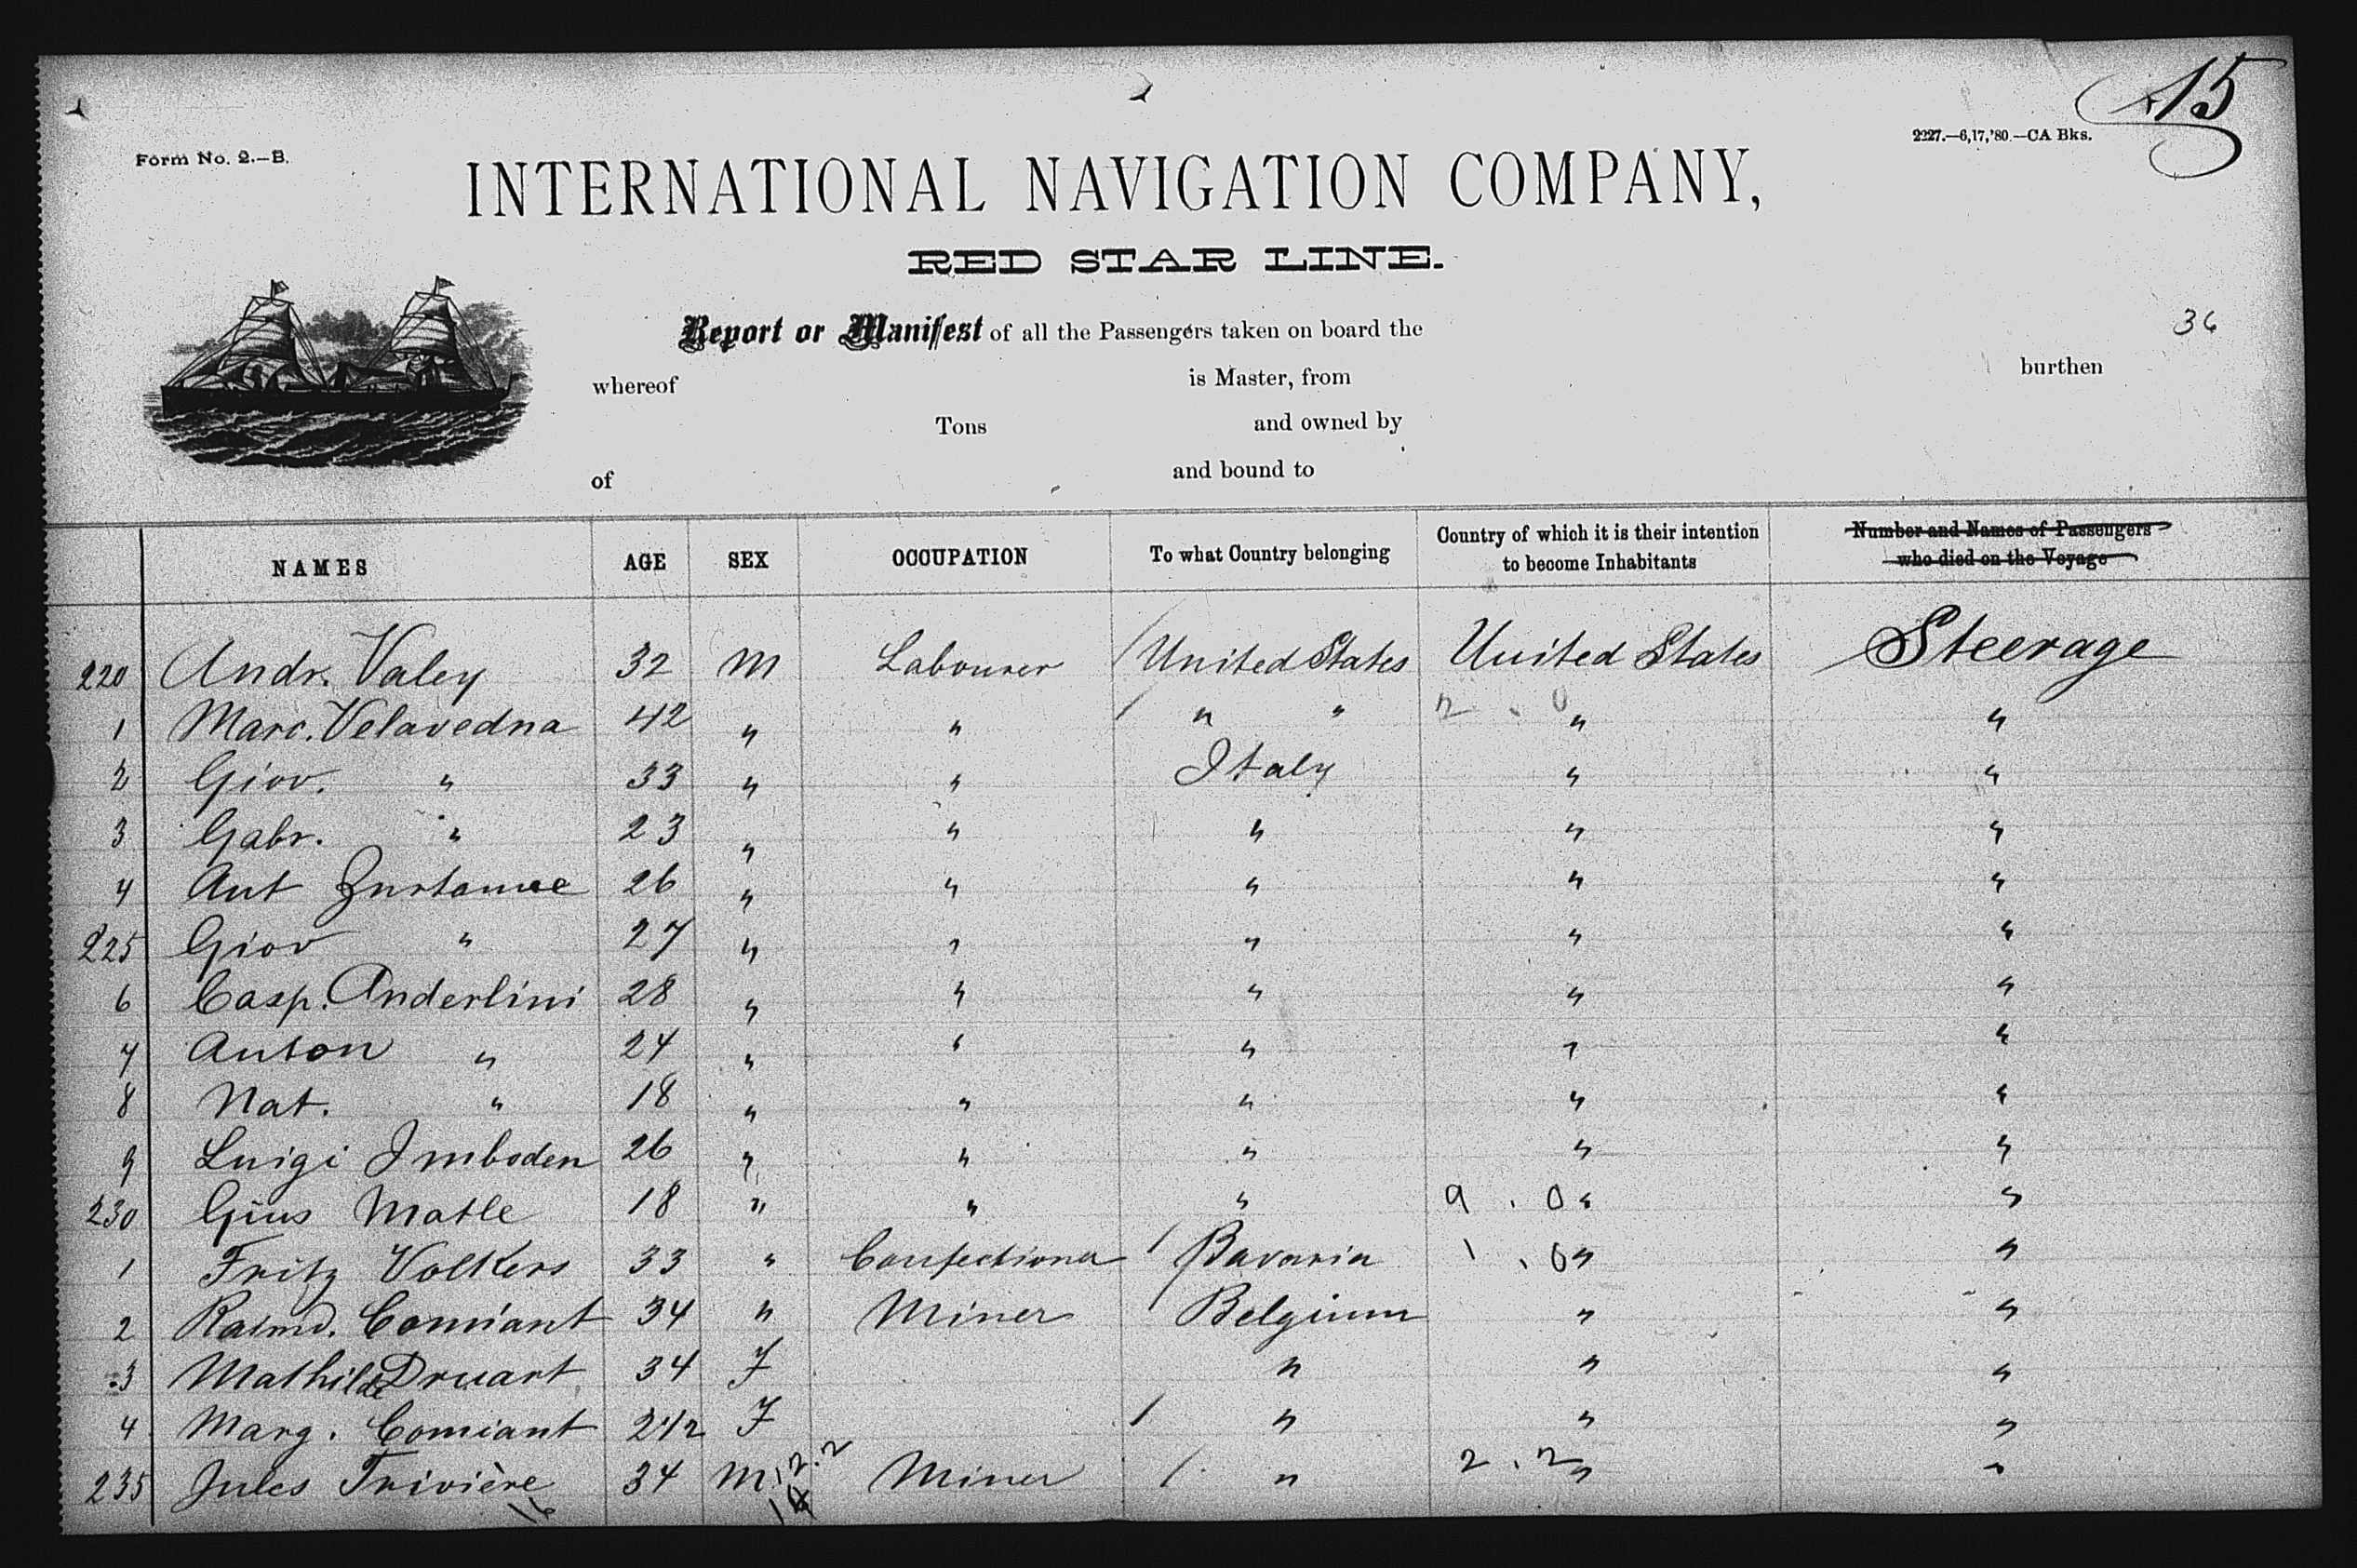 15
Form No. 2.—B.
2227.—6,17,'80.—CA Bks.
INTERNATIONAL NAVIGATION COMPANY,
RED STAR LINE.
Report or Manifest of all the Passengers taken on board the
36
whereof is Master, from burthen
Tons and owned by
of and bound to
NAMES AGE SEX OCCUPATION To what Country belonging Country of which it is their intention to become Inhabitants Number and Names of Passengers who died on the Voyage
220 Andr. Valey 32 M Labourer / United States United States Steerage
1 Marc. Velavedna 42 " " / " " 2 . 0 " "
2 Giov. " 33 " " Italy " "
3 Gabr. " 23 " " " " "
4 Ant 26 " " " " "
225 Giov " 27 " " " " "
6 Casp. Anderlini 28 " " " " "
7 Anton " 24 " " " " "
8 Nat. " 18 " " " " "
9 Luigi Imboden 26 " " " " "
230 Gius Matle 18 " " " 9 . 0 " "
1 Fritz Volkers 33 " Confectioner / Bavaria 1 . 0 " "
2 Raimd. Comiant 34 " Miner / Belgium " "
3 Mathilde Druart 34 F " " "
4 Marg. Comiant 2 1/2 F / " " "
235 Jules Trivière 34 M 12.2 Miner / " 2 . 2 " "